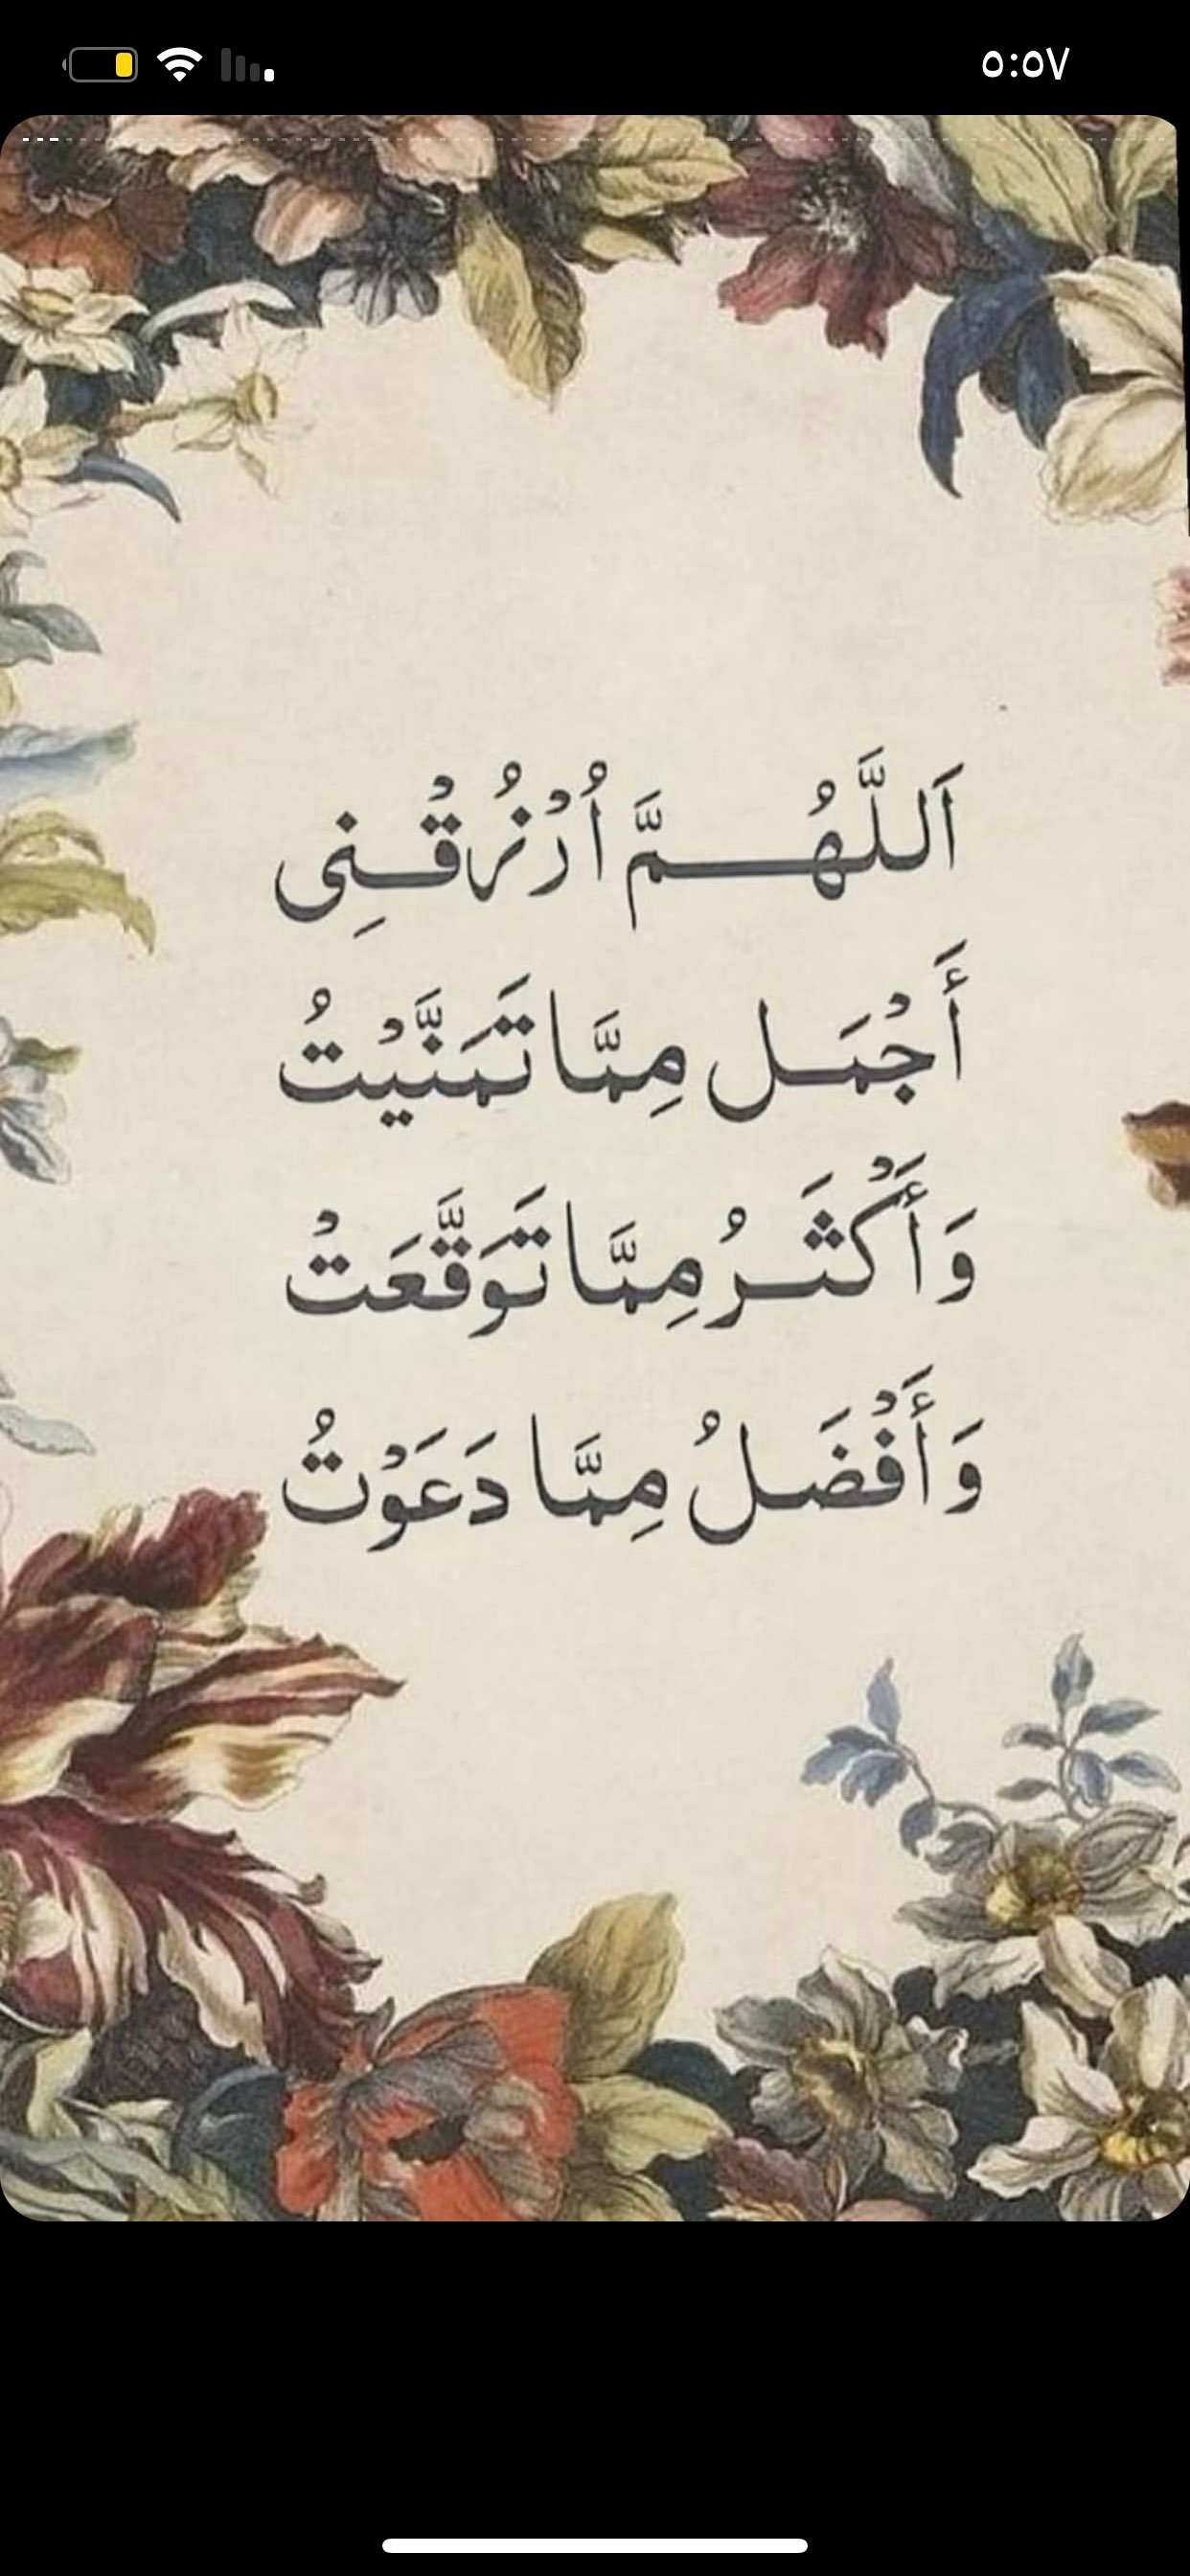 ٥:٥٧
اَللَّهُمَّ اُرْزُقْنِى
أَجْمَل مِمَّا تَمَنَّيْتُ
وَأَكْثَرُ مِمَّا تَوَقَّعَتْ
وَأَفْضَلُ مِمَّا دَعَوْتُ